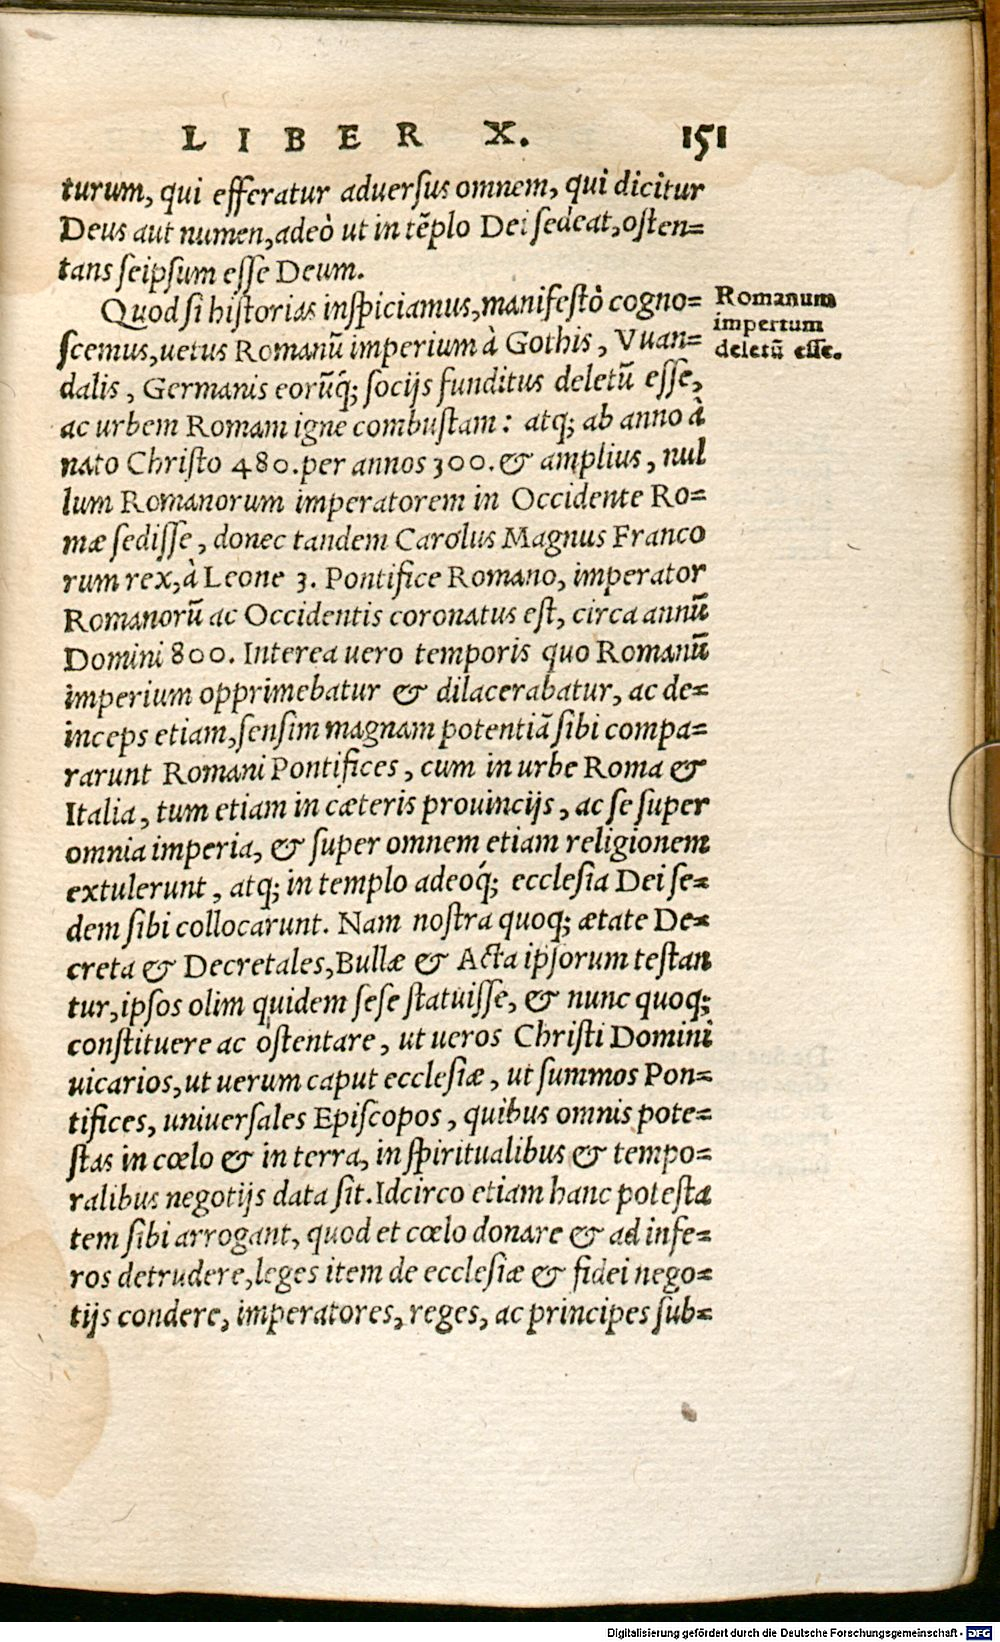 LIBER X. 151
turum, qui efferatur aduersus omnem, qui dicitur
Deus aut numen, adeò ut in tẽplo Dei sedeat, osten=
tans seipsum esse Deum.
Quod si historias inspiciamus, manifestò cogno=
scemus, uetus Romanũ imperium à Gothis, Vuan=
dalis, Germanis eorũq́; socijs funditus deletũ esse,
ac urbem Romam igne combustam: atq; ab anno à
nato Christo 480. per annos 300. & amplius, nul
lum Romanorum imperatorem in Occidente Ro=
mæ sedisse, donec tandem Carolus Magnus Franco
rum rex, à Leone 3. Pontifice Romano, imperator
Romanorũ ac Occidentis coronatus est, circa annũ
Domini 800. Interea uero temporis quo Romanũ
imperium opprimebatur & dilacerabatur, ac de=
inceps etiam, sensim magnam potentiã sibi compa=
rarunt Romani Pontifices, cum in urbe Roma &
Italia, tum etiam in cæteris prouincijs, ac se super
omnia imperia, & super omnem etiam religionem
extulerunt, atq; in templo adeoq́; ecclesia Dei se=
dem sibi collocarunt. Nam nostra quoq; ætate De=
creta & Decretales, Bullæ & Acta ipsorum testan
tur, ipsos olim quidem sese statuisse, & nunc quoq;
constituere ac ostentare, ut ueros Christi Domini
uicarios, ut uerum caput ecclesiæ, ut summos Pon=
tifices, uniuersales Episcopos, quibus omnis pote=
stas in cœlo & in terra, in spiritualibus & tempo=
ralibus negotijs data sit. Idcirco etiam hanc potesta
tem sibi arrogant, quod et cœlo donare & ad infe=
ros detrudere, leges item de ecclesiæ & fidei nego=
tijs condere, imperatores, reges, ac principes sub=
Romanum
imperium
deletũ esse.
Digitalisierung gefördert durch die Deutsche Forschungsgemeinschaft - DFG